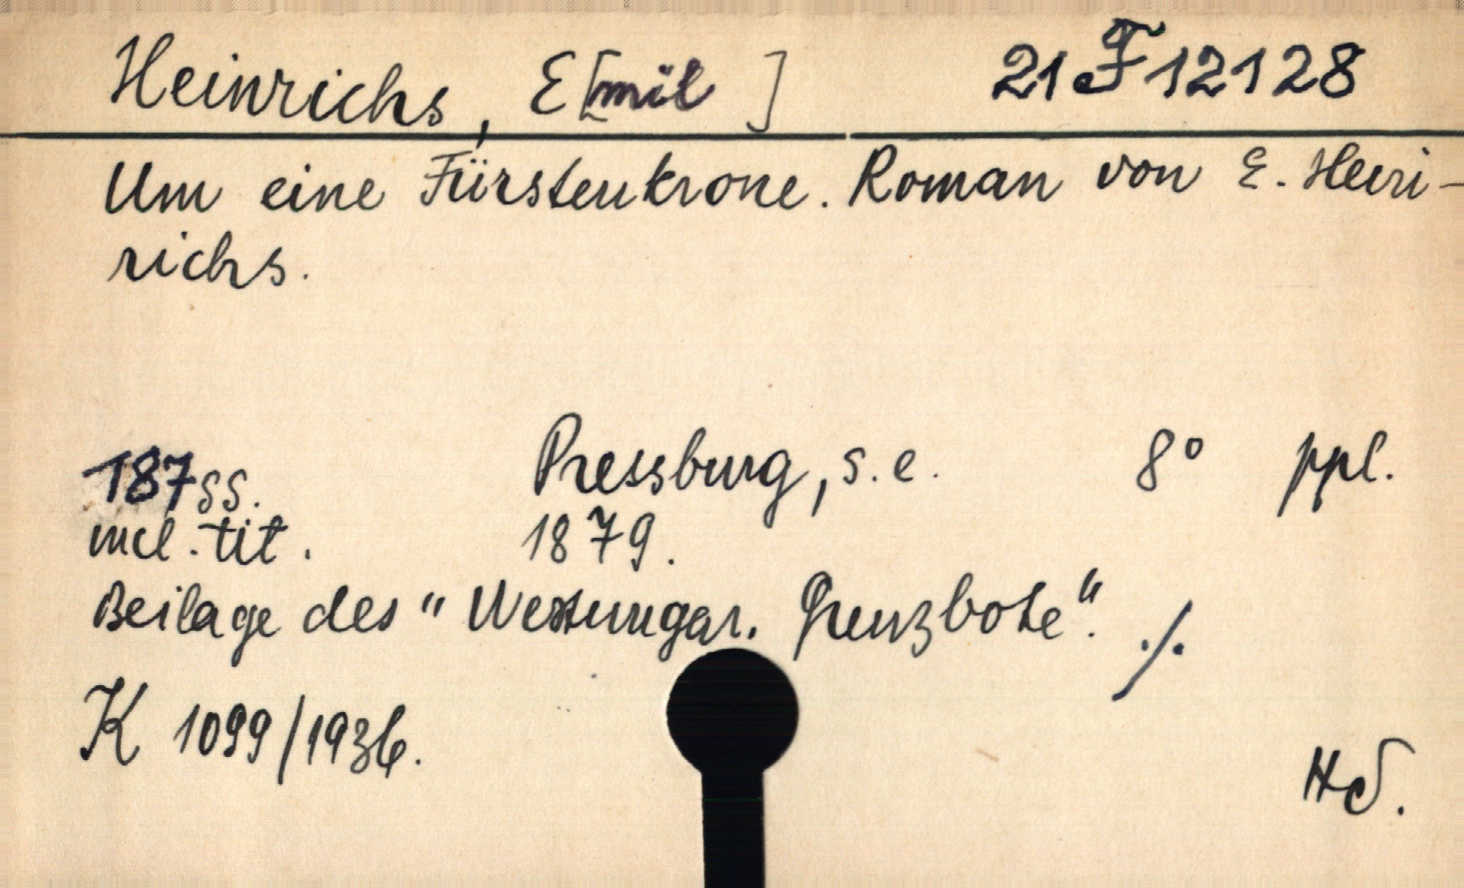 Heinrichs, E[mil] 21 F 12128
Um eine Fürstenkrone. Roman von E. Hein-
richs.
187 ss. Pressburg, s. e. 8° ppl.
incl. tit. 1879.
Beilage des "Westungar. Grenzbote". ./.
K 1099/1936.
Hd.